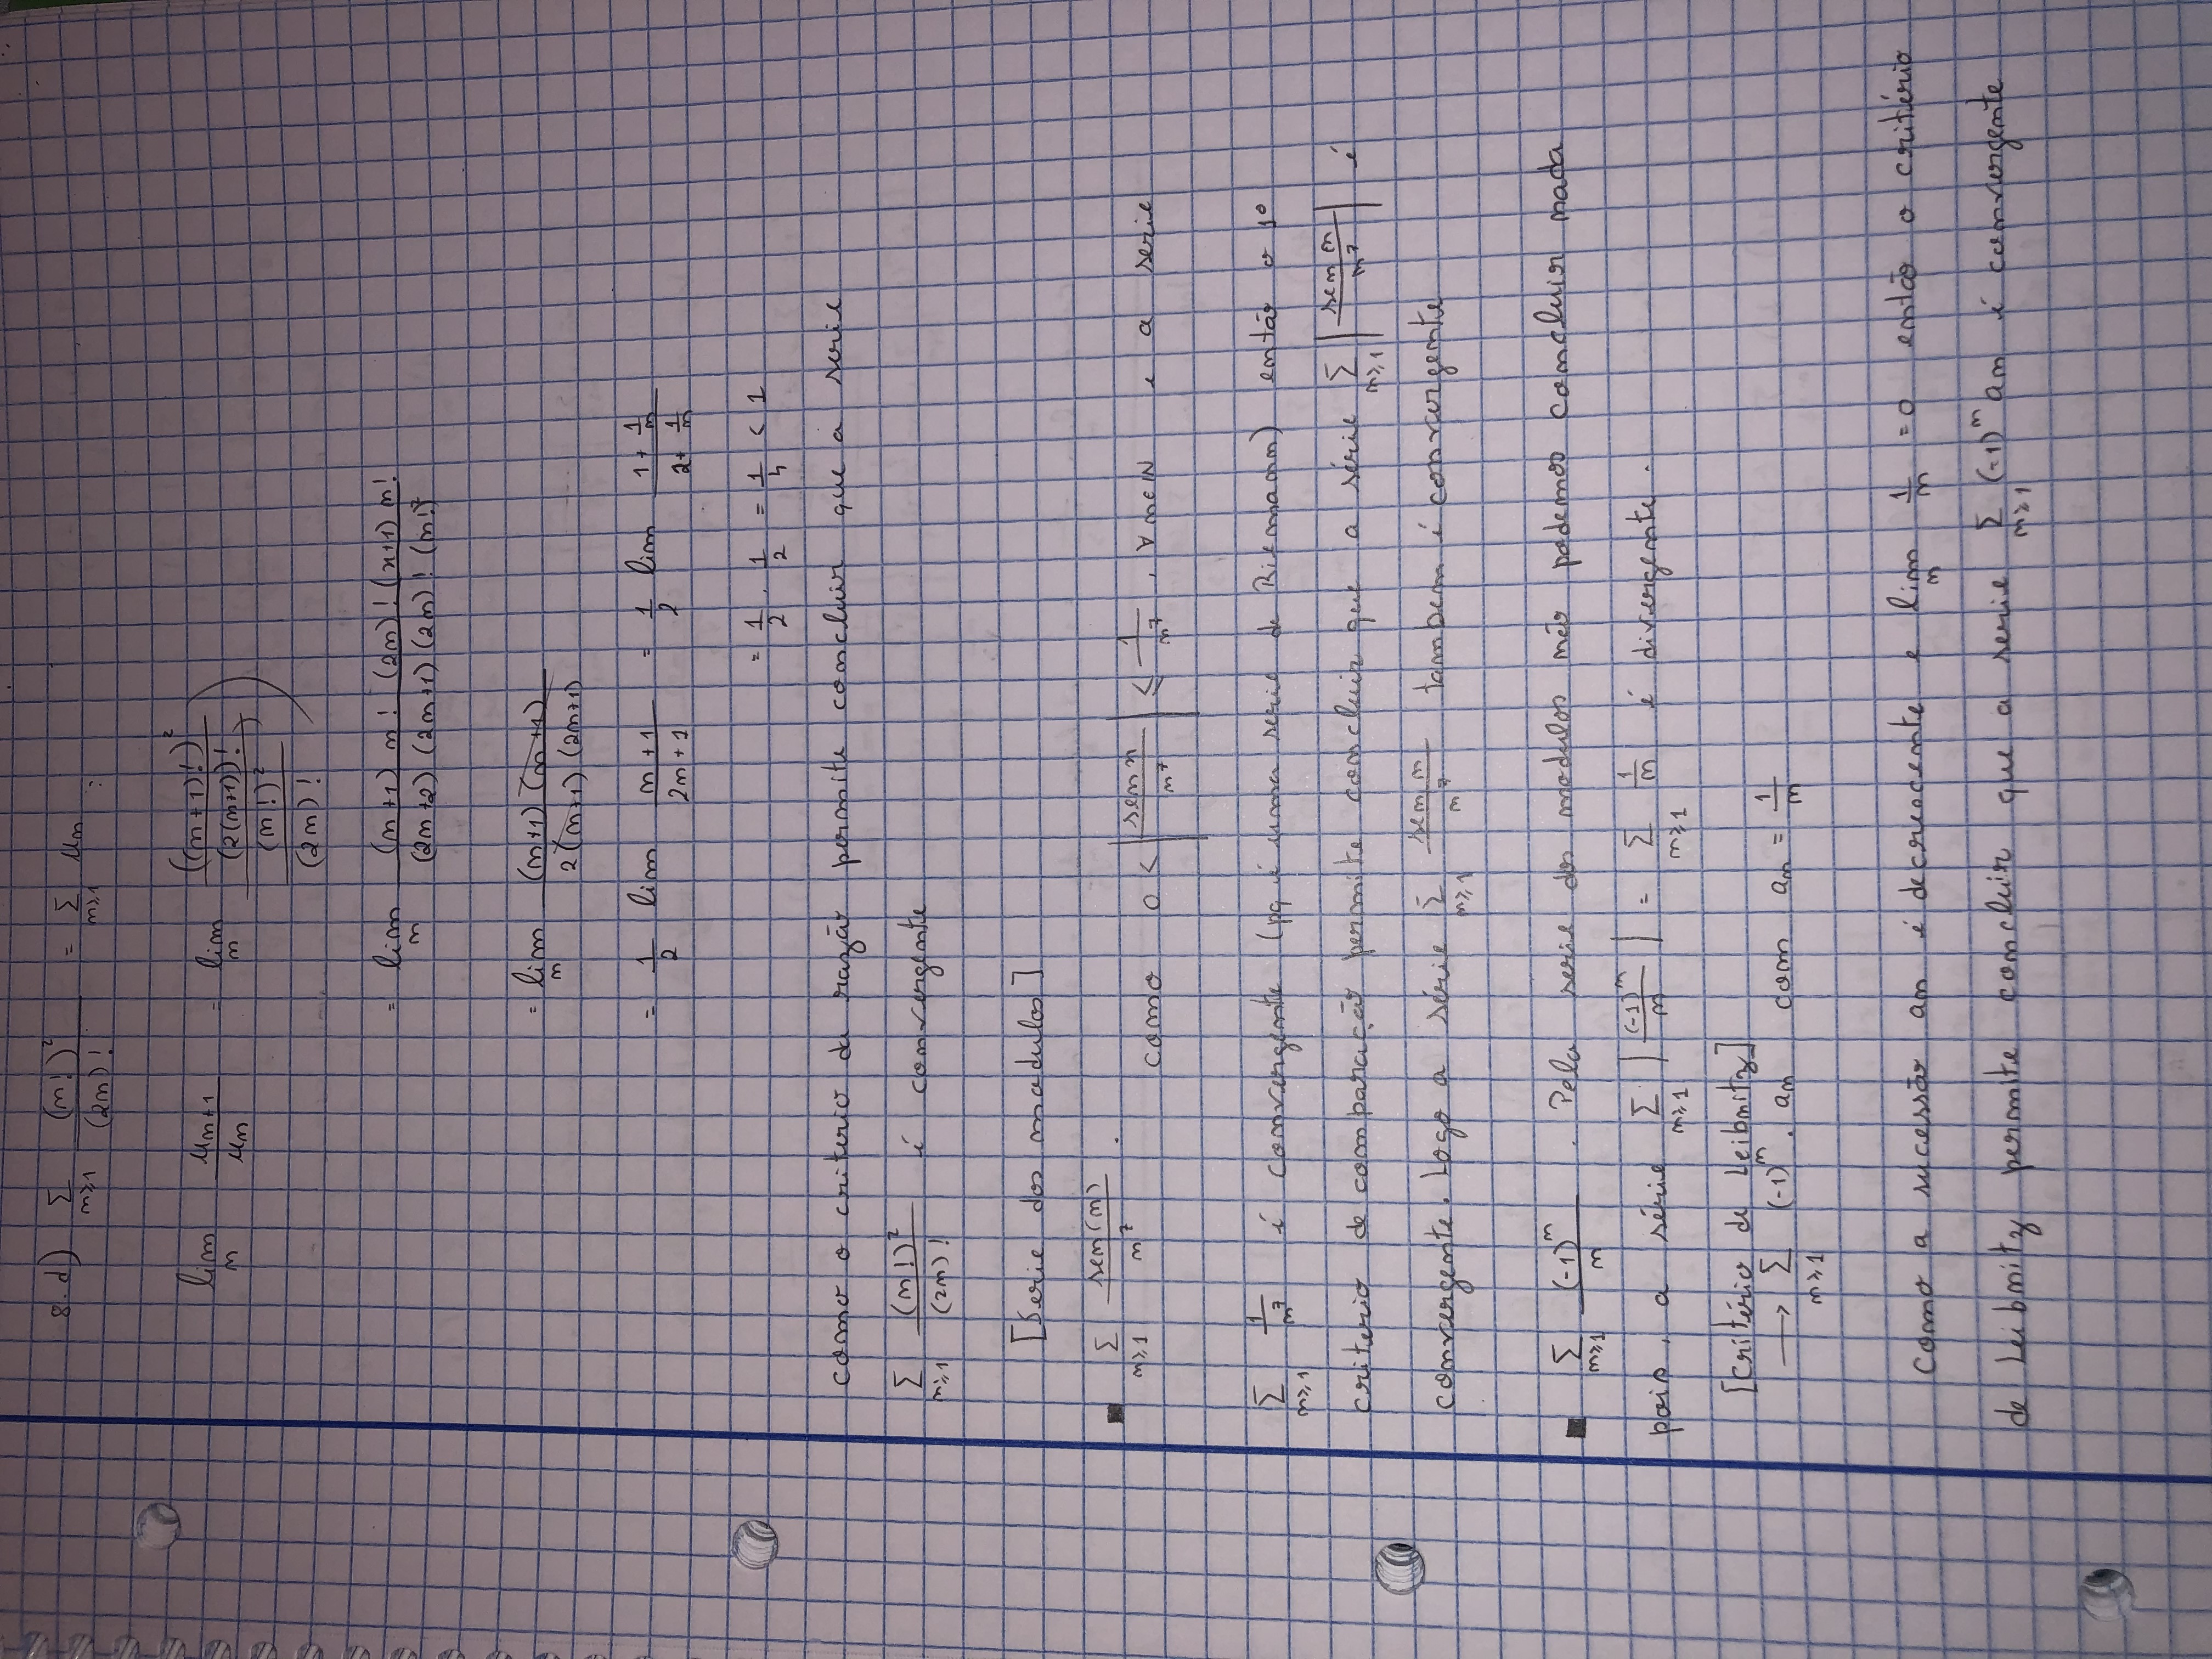 8. d) Σ_{n≥1} (n!)² / (2n)! = Σ_{n≥1} u_n :
lim_n u_{n+1} / u_n = lim_n (((n+1)!)² / (2(n+1))!) / ((n!)² / (2n)!)
= lim_n ((n+1) n! (2n)! (n+1) n!) / ((2n+2) (2n+1) (2n)! (n!)²)
= lim_n ((n+1) (n+1)) / (2(n+1) (2n+1))
= 1/2 lim (n+1)/(2n+1) = 1/2 lim (1+ 1/n)/(2+ 1/n)
= 1/2 . 1/2 = 1/4 < 1
como o criterio da razão permite concluir que a serie
Σ_{n≥1} (n!)² / (2n)! é convergente
[Serie dos modulos]
▪ Σ_{n≥1} sen(n) / n⁷ . como 0 < | sen n / n⁷ | ≤ 1/n⁷ , ∀ n∈ℕ e a serie
Σ_{n≥1} 1/n⁷ é convergente (pq é uma serie de Riemann) então o 1º
criterio de comparação permite concluir que a série Σ_{n≥1} | sen n / n⁷ | é
convergente. Logo a série Σ_{n≥1} sen n / n⁷ tambem é convergente
▪ Σ_{n≥1} (-1)ⁿ / n . Pela serie dos modulos não podemos concluir nada
pois, a série Σ_{n≥1} | (-1)ⁿ / n | = Σ_{n≥1} 1/n é divergente.
[Critério de Leibnitz]
→ Σ_{n≥1} (-1)ⁿ . a_n com a_n = 1/n
Como a sucessão an é decrescente e lim_n 1/n = 0 então o critério
de Leibnitz permite concluir que a serie Σ_{n≥1} (-1)ⁿ an é convergente